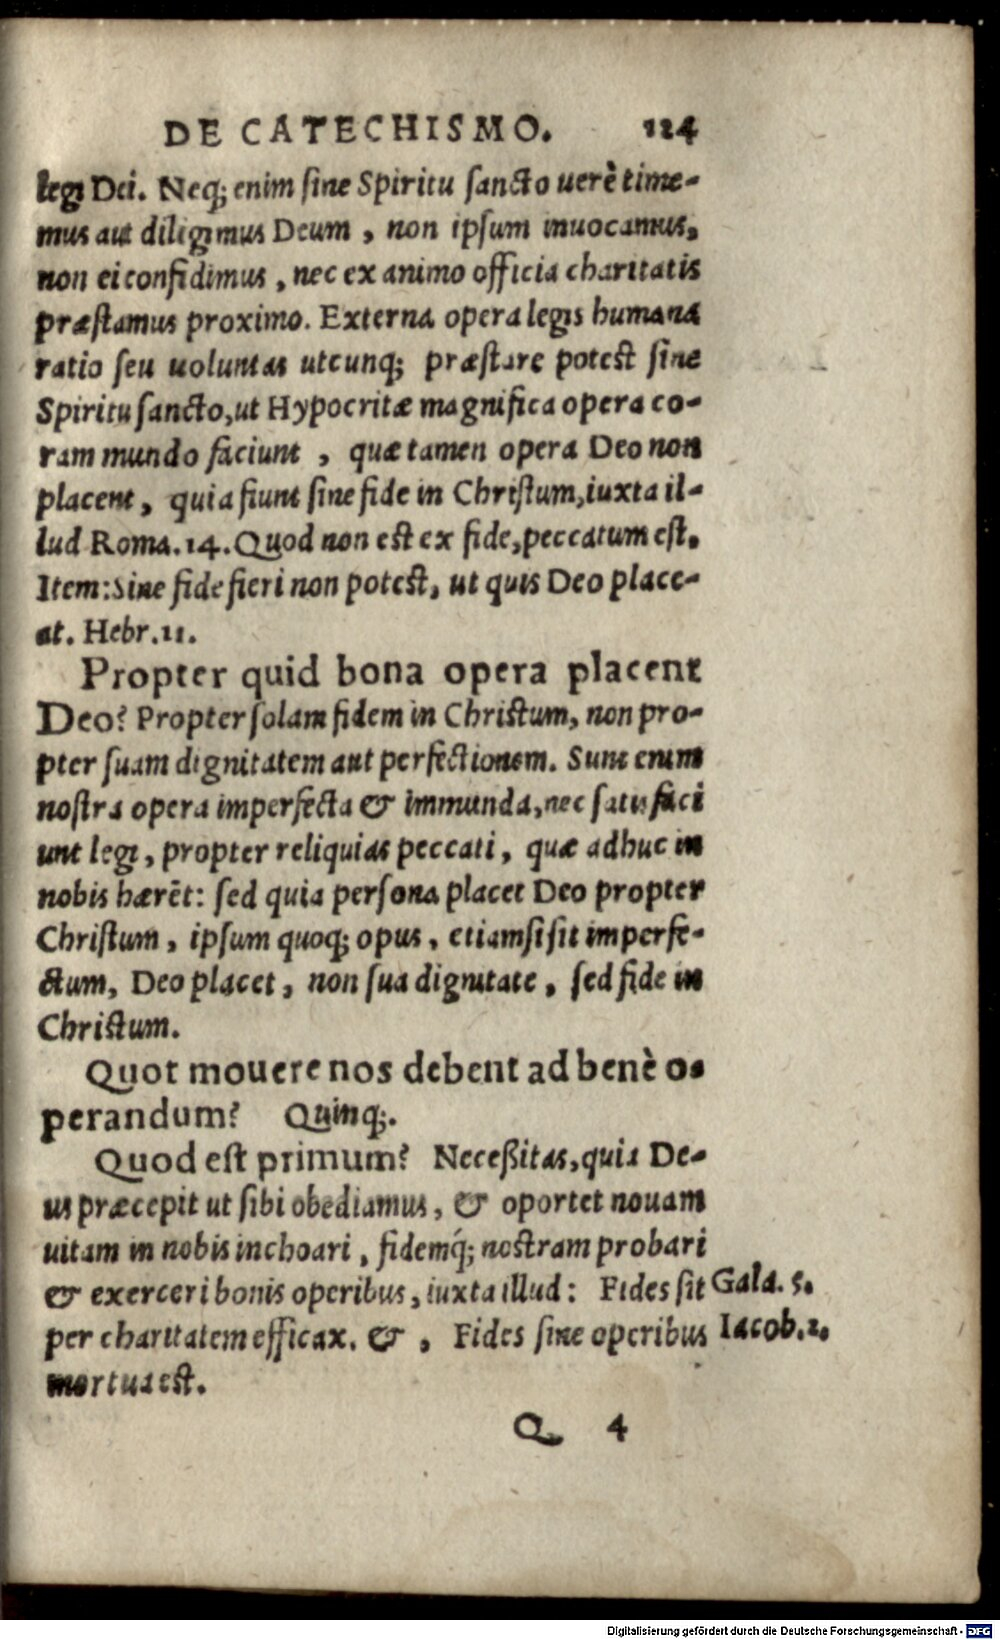 DE CATECHISMO. 124
legi Dei. Neq; enim sine Spiritu sancto uerè time-
mus aut diligimus Deum, non ipsum inuocamus,
non ei confidimus, nec ex animo officia charitatis
præstamus proximo. Externa opera legis humana
ratio seu uoluntas utcunq; præstare potest sine
Spiritu sancto, ut Hypocritæ magnifica opera co-
ram mundo faciunt, quæ tamen opera Deo non
placent, quia fiunt sine fide in Christum, iuxta il-
lud Roma. 14. Quod non est ex fide, peccatum est.
Item: Sine fide fieri non potest, ut quis Deo place-
at. Hebr. 11.
Propter quid bona opera placent
Deo? Propter solam fidem in Christum, non pro-
pter suam dignitatem aut perfectionem. Sunt enim
nostra opera imperfecta & immunda, nec satis faci
unt legi, propter reliquias peccati, quæ adhuc in
nobis hærēt: sed quia persona placet Deo propter
Christum, ipsum quoq; opus, etiamsi sit imperfe-
ctum, Deo placet, non sua dignitate, sed fide in
Christum.
Quot mouere nos debent ad benè o-
perandum? Quinq;.
Quod est primum? Neceßitas, quia De-
us præcepit ut sibi obediamus, & oportet nouam
uitam in nobis inchoari, fidemq́; nostram probari
& exerceri bonis operibus, iuxta illud: Fides sit Gala. 5.
per charitatem efficax. &, Fides sine operibus Iacob. 2.
mortua est.
Q 4
Digitalisierung gefördert durch die Deutsche Forschungsgemeinschaft - DFG